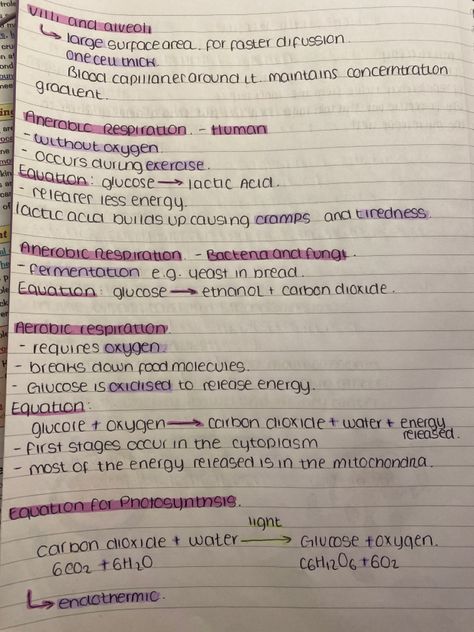 Villi and alveoli
↳ large surface area for faster difussion.
one cell thick
Blood capillaries around it maintains concerntration
gradient.
Anerobic Respiration - Human
- without oxygen
- occurs during exercise.
Equation: glucose → lactic Acid.
- releases less energy.
lactic acid builds up causing cramps and tiredness.
Anerobic Respiration - Bacteria and fungi.
- fermentation e.g. yeast in bread.
Equation: glucose → ethanol + carbon dioxide.
Aerobic respiration.
- requires oxygen.
- breaks down food molecules.
- Glucose is oxidised to release energy.
Equation:
glucose + oxygen → carbon dioxide + water + energy
released.
- first stages occur in the cytoplasm
- most of the energy released is in the mitochondria.
Equation for Photosynthsis.
light
carbon dioxide + water → Glucose + oxygen.
6CO2 + 6H2O C6H12O6 + 6O2
↳ endothermic.